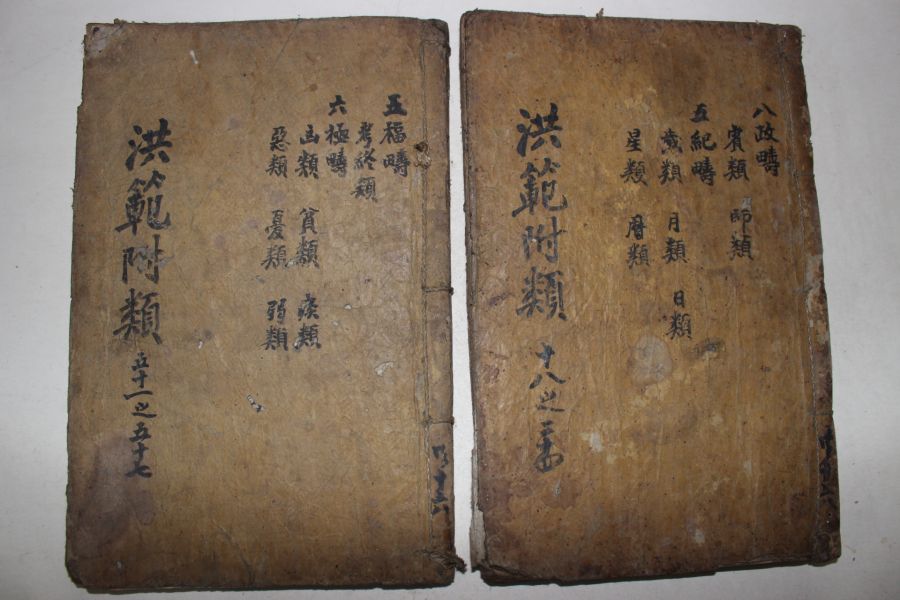 八政疇
賓類 師類
五紀疇
歲類 月類 日類
星類 曆類
洪範附類 十八之
五福疇
考終類
六極疇
凶類 貧類 疾類
惡類 憂類 弱類
洪範附類 五十一之五十七
十六